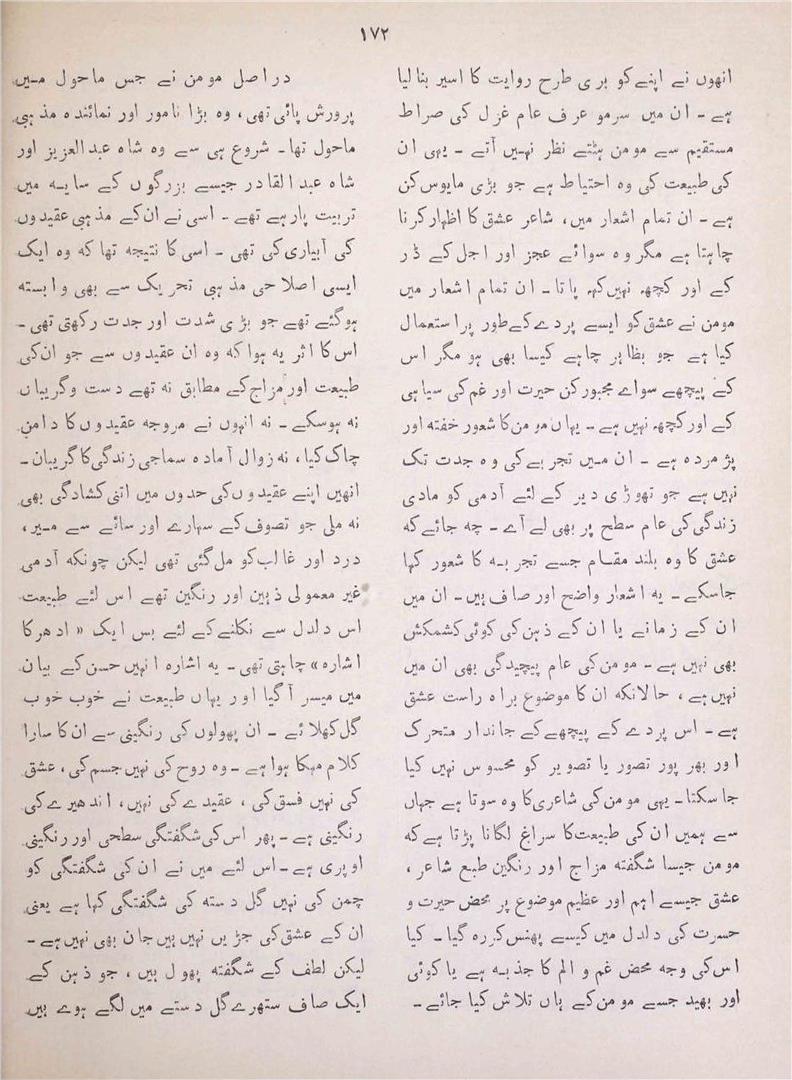 ۱۷۲
انھوں نے اپنے کو بری طرح روایت کا اسیر بنا لیا
ہے ۔ ان میں سرمو عرف عام غزل کی صراط
مستقیم سے مومن ہٹتے نظر نہیں آتے ۔ یہی ان
کی طبیعت کی وہ احتیاط ہے جو بڑی مایوس کن
ہے ۔ ان تمام اشعار میں، شاعر عشق کا اظہار کرنا
چاہتا ہے مگر وہ سوائے عجز اور اجل کے ڈر
کے اور کچھہ نہیں کہہ پاتا ۔ ان تمام اشعار میں
مومن نے عشق کو ایسے پردے کے طور پر استعمال
کیا ہے جو بظاہر چاہے کیسا بھی ہو مگر اس
کے پیچھے سواے مجبور کن حیرت اور غم کی سیاہی
کے اور کچھہ نہیں ہے ۔ یہاں مومن کا شعور خفتہ اور
پژ مردہ ہے ۔ ان میں تجربے کی وہ جدت تک
نہیں ہے جو تھوڑی دیر کے لئے آدمی کو مادی
زندگی کی عام سطح پر بھی لے آے ۔ چہ جائے کہ
عشق کا وہ بلند مقام جسے تجربہ کا شعور کہا
جاسکے ۔ یہ اشعار واضح اور صاف ہیں ۔ ان میں
ان کے زمانے یا ان کے ذہن کی کوئی کشمکش
بھی نہیں ہے ۔ مومن کی عام پیچیدگی بھی ان میں
نہیں ہے ، حالانکہ ان کا موضوع براہ راست عشق
ہے ۔ اس پردے کے پیچھے کے جاندار متحرک
اور بھر پور تصور یا تصویر کو محسوس نہیں کیا
جا سکتا ۔ یہی مومن کی شاعری کا وہ سوتا ہے جہاں
سے ہمیں ان کی طبیعت کا سراغ لگانا پڑتا ہے کہ
مومن جیسا شگفتہ مزاج اور رنگین طبع شاعر ،
عشق جیسے اہم اور عظیم موضوع پر محض حیرت و
حسرت کی دلدل میں کیسے پھنس کر رہ گیا ۔ کیا
اس کی وجہ محض غم و الم کا جذبہ ہے یا کوئی
اور بھید جسے مومن کے ہاں تلاش کیا جائے ۔
در اصل مومن نے جس ماحول میں
پرورش پائی تھی، وہ بڑا نامور اور نمائندہ مذہبی
ماحول تھا ۔ شروع ہی سے وہ شاہ عبدالعزیز اور
شاہ عبدالقادر جیسے بزرگوں کے سایہ میں
تربیت پارہے تھے ۔ اسی نے ان کے مذہبی عقیدوں
کی آبیاری کی تھی ۔ اسی کا نتیجہ تھا کہ وہ ایک
ایسی اصلاحی مذہبی تحریک سے بھی وابستہ
ہوگئے تھے جو بڑی شدت اور جدت رکھتی تھی ۔
اس کا اثر یہ ہوا کہ وہ ان عقیدوں سے جو ان کی
طبیعت اور مزاج کے مطابق نہ تھے دست و گریباں
نہ ہوسکے ۔ نہ انہوں نے مروجہ عقیدوں کا دامن
چاک کیا، نہ زوال آمادہ سماجی زندگی کا گریبان ۔
انھیں اپنے عقیدوں کی حدوں میں اتنی کشادگی بھی
نہ ملی جو تصوف کے سہارے اور سائے سے میر،
درد اور غالب کو مل گئی تھی لیکن چونکہ آدمی
غیر معمولی ذہین اور رنگین تھے اس لئے طبیعت
اس دلدل سے نکلنے کے لئے بس ایک «ادھر کا
اشارہ» چاہتی تھی ۔ یہ اشارہ انہیں حسن کے بیان
میں میسر آگیا اور یہاں طبیعت نے خوب خوب
گل کھلائے ۔ ان پھولوں کی رنگینی سے ان کا سارا
کلام مہکا ہوا ہے ۔ وہ روح کی نہیں جسم کی، عشق
کی نہیں فسق کی ، عقیدے کی نہیں، اندھیرے کی
رنگینی ہے ۔ پھر اس کی شگفتگی سطحی اور رنگینی
اوپری ہے ۔ اس لئے میں نے ان کی شگفتگی کو
چمن کی نہیں گل دستہ کی شگفتگی کہا ہے یعنی
ان کے عشق کی جڑیں نہیں ہیں جان بھی نہیں ہے ۔
لیکن لطف کے شگفتہ پھول ہیں ، جو ذہن کے
ایک صاف ستھرے گل دستے میں لگے ہوے ہیں